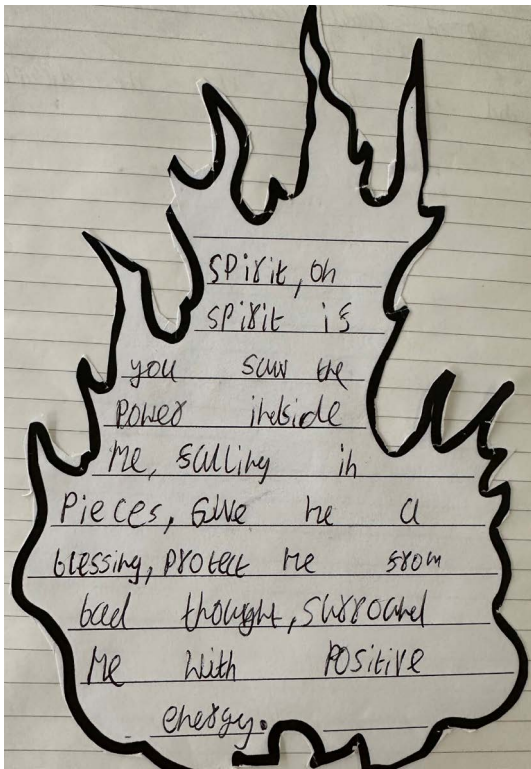 Spirit, oh
spirit is
you saw the
power indside
me, salling in
pieces, Give me a
blessing, protect me srom
bad thought, surround
me with positive
energy.